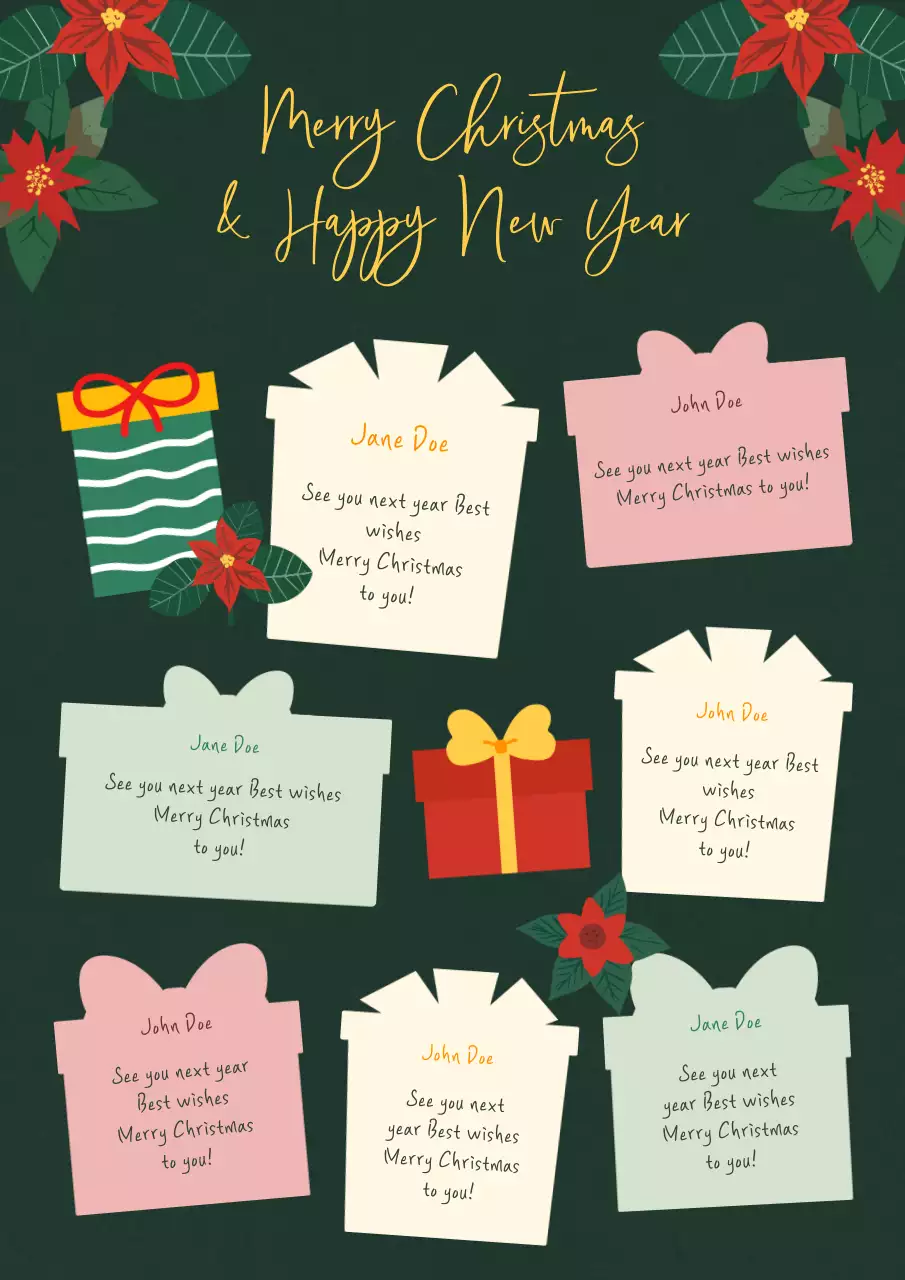 Merry Christmas
& Happy New Year
Jane Doe
See you next year Best
wishes
Merry Christmas
to you!
John Doe
See you next year Best wishes
Merry Christmas to you!
Jane Doe
See you next year Best wishes
Merry Christmas
to you!
John Doe
See you next year Best
wishes
Merry Christmas
to you!
John Doe
See you next year
Best wishes
Merry Christmas
to you!
John Doe
See you next
year Best wishes
Merry Christmas
to you!
Jane Doe
See you next
year Best wishes
Merry Christmas
to you!